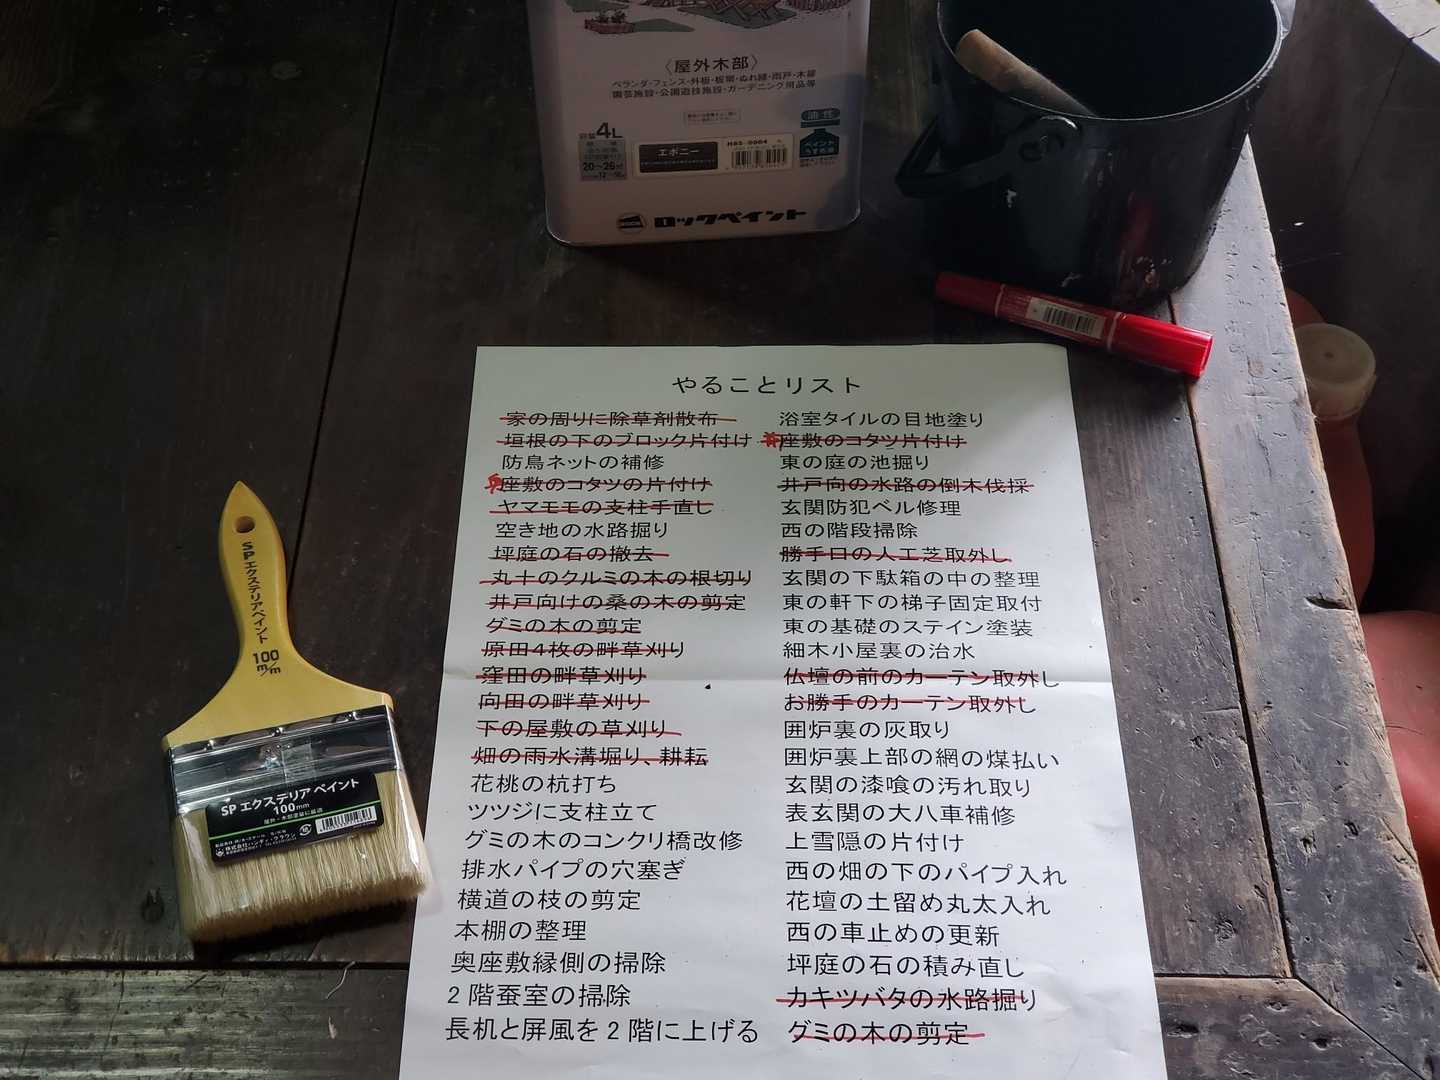 〈屋外木部〉
ベランダ・フェンス・外板・板塀・ぬれ縁・雨戸・木縁
園芸施設・公園遊技施設・ガーデニング用品等
容量4L
20〜26㎡
エボニー
H85-0004
油性
ペイント
うすめ液
ロックペイント
SPエクステリアペイント
100
m/m
SP エクステリア ペイント
100mm
屋外・木部塗装に最適
株式会社ハンディ・クラウン
やることリスト
家の周りに除草剤散布
垣根の下のブロック片付け
防鳥ネットの補修
座敷のコタツの片付け
ヤマモモの支柱手直し
空き地の水路掘り
坪庭の石の撤去
丸十のクルミの木の根切り
井戸向けの桑の木の剪定
グミの木の剪定
原田4枚の畔草刈り
窪田の畔草刈り
向田の畔草刈り
下の屋敷の草刈り
畑の雨水溝堀り、耕耘
花桃の杭打ち
ツツジに支柱立て
グミの木のコンクリ橋改修
排水パイプの穴塞ぎ
横道の枝の剪定
本棚の整理
奥座敷縁側の掃除
2階蚕室の掃除
長机と屏風を2階に上げる
浴室タイルの目地塗り
座敷のコタツ片付け
東の庭の池掘り
井戸向の水路の倒木伐採
玄関防犯ベル修理
西の階段掃除
勝手口の人工芝取外し
玄関の下駄箱の中の整理
東の軒下の梯子固定取付
東の基礎のステイン塗装
細木小屋裏の治水
仏壇の前のカーテン取外し
お勝手のカーテン取外し
囲炉裏の灰取り
囲炉裏上部の網の煤払い
玄関の漆喰の汚れ取り
表玄関の大八車補修
上雪隠の片付け
西の畑の下のパイプ入れ
花壇の土留め丸太入れ
西の車止めの更新
坪庭の石の積み直し
カキツバタの水路掘り
グミの木の剪定